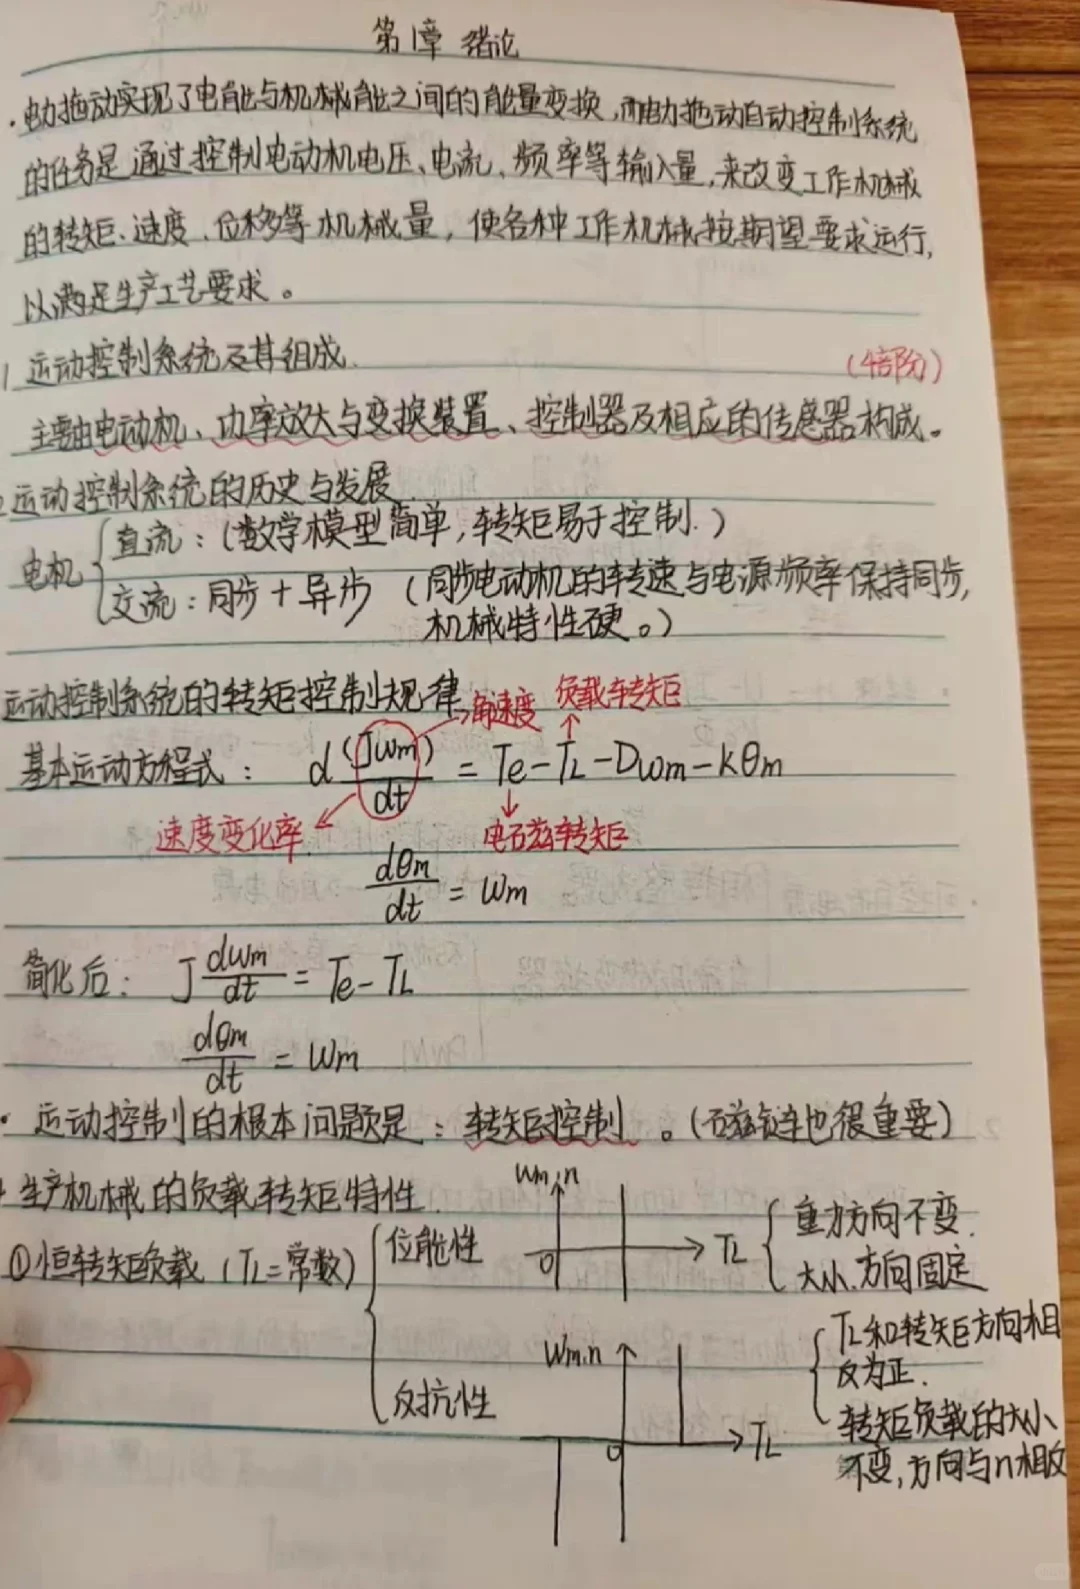 第1章 绪论
·电力拖动实现了电能与机械能之间的能量变换,而电力拖动自动控制系统
的任务是通过控制电动机电压、电流、频率等输入量,来改变工作机械
的转矩、速度、位移等机械量,使各种工作机械按期望要求运行,
以满足生产工艺要求。
1 运动控制系统及其组成. (4部分)
主要由电动机、功率放大与变换装置、控制器及相应的传感器构成。
2 运动控制系统的历史与发展
电机 { 直流:(数学模型简单,转矩易于控制.)
交流:同步+异步 (同步电动机的转速与电源频率保持同步,
机械特性硬。)
运动控制系统的转矩控制规律 角速度 负载转矩
基本运动方程式: d(Jωm)/dt = Te-TL-Dωm-kθm
速度变化率 电磁转矩
dθm/dt = ωm
简化后: J dωm/dt = Te-TL
dθm/dt = ωm
· 运动控制的根本问题是:转矩控制。(磁链也很重要)
生产机械的负载转矩特性.
ωm,n
①恒转矩负载(TL=常数) { 位能性
0 TL { 重力方向不变.
大小、方向固定
反抗性
ωm,n
0 TL { TL和转矩方向相
反为正.
转矩负载的大小
不变,方向与n相反